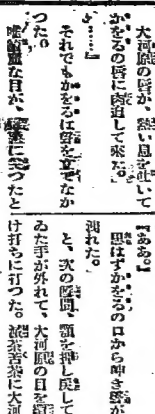 大河原の唇が、熱い息を吐いて
かをるの唇に肉迫して来た。
『……』
それでもかをるは聲を立てなか
つた。
唯綺麗な目が、に突つたと
『ああ。』
思はずかをるの口から呻き聲が
洩れた。
と、次の瞬間、顎を押し戻して
ゐた手が外れて、大河原の目を
け打ちに打つた。滅茶苦茶に大河